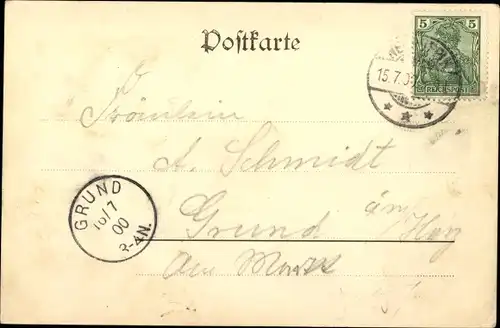 Postkarte
5 5
REICHSPOST
15.7.00
Fräulein
A. Schmidt
Grund am Harz
Am Markt
GRUND
16/7
00
2-4N.